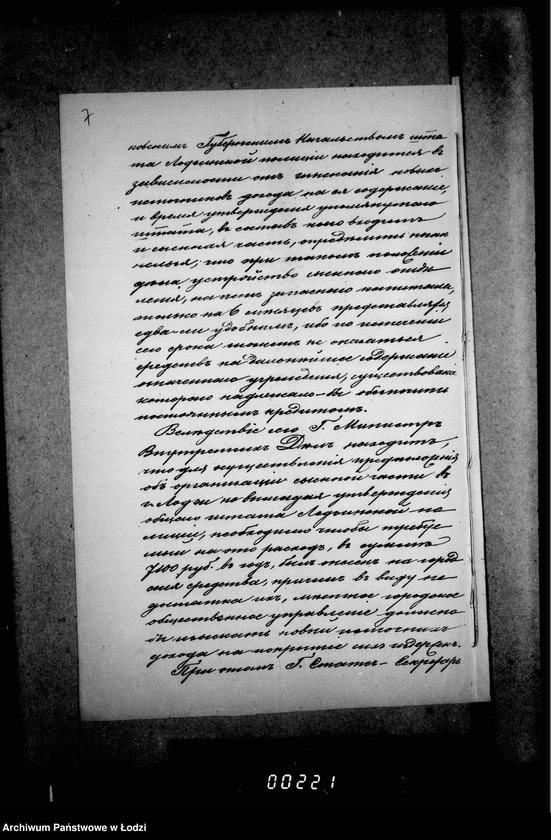 7
ковскимъ Губернскимъ Начальствомъ шта
та Лодзинской полиціи находится въ
зависимости отъ изысканія новыхъ
источниковъ дохода на ея содержаніе,
и время утвержденія упомянутаго
штата, въ составъ коего входитъ
и сыскная часть, опредѣлить
нельзя; что при такомъ положеніи
дѣла устройство сыскного отдѣ
ленія, на счетъ запаснаго капитала,
только на 6 мѣсяцевъ представляется
едва-ли удобнымъ, ибо по истеченіи
сего срока можетъ не оказаться
средствъ на дальнѣйшее содержаніе
означеннаго учрежденія, существованіе
котораго надлежало-бы обезпечить
постояннымъ кредитомъ.
Вслѣдствіе сего Г. Министръ
Внутреннихъ Дѣлъ находитъ,
что для осуществленія предположенія
объ организаціи сыскной части въ
г. Лодзи не выжидая утвержденія
общаго штата Лодзинской по
лиціи, необходимо чтобы требуе
мый на это расходъ, въ суммѣ
7100 руб. въ годъ, былъ отнесенъ на город
скія средства, причемъ въ виду не
достатка ихъ, мѣстное городское
общественное управленіе должно
бы изыскать новый источникъ
дохода на покрытіе сихъ издержекъ.
При этомъ Г. Статсъ-Секретарь
00221
Archiwum Państwowe w Łodzi